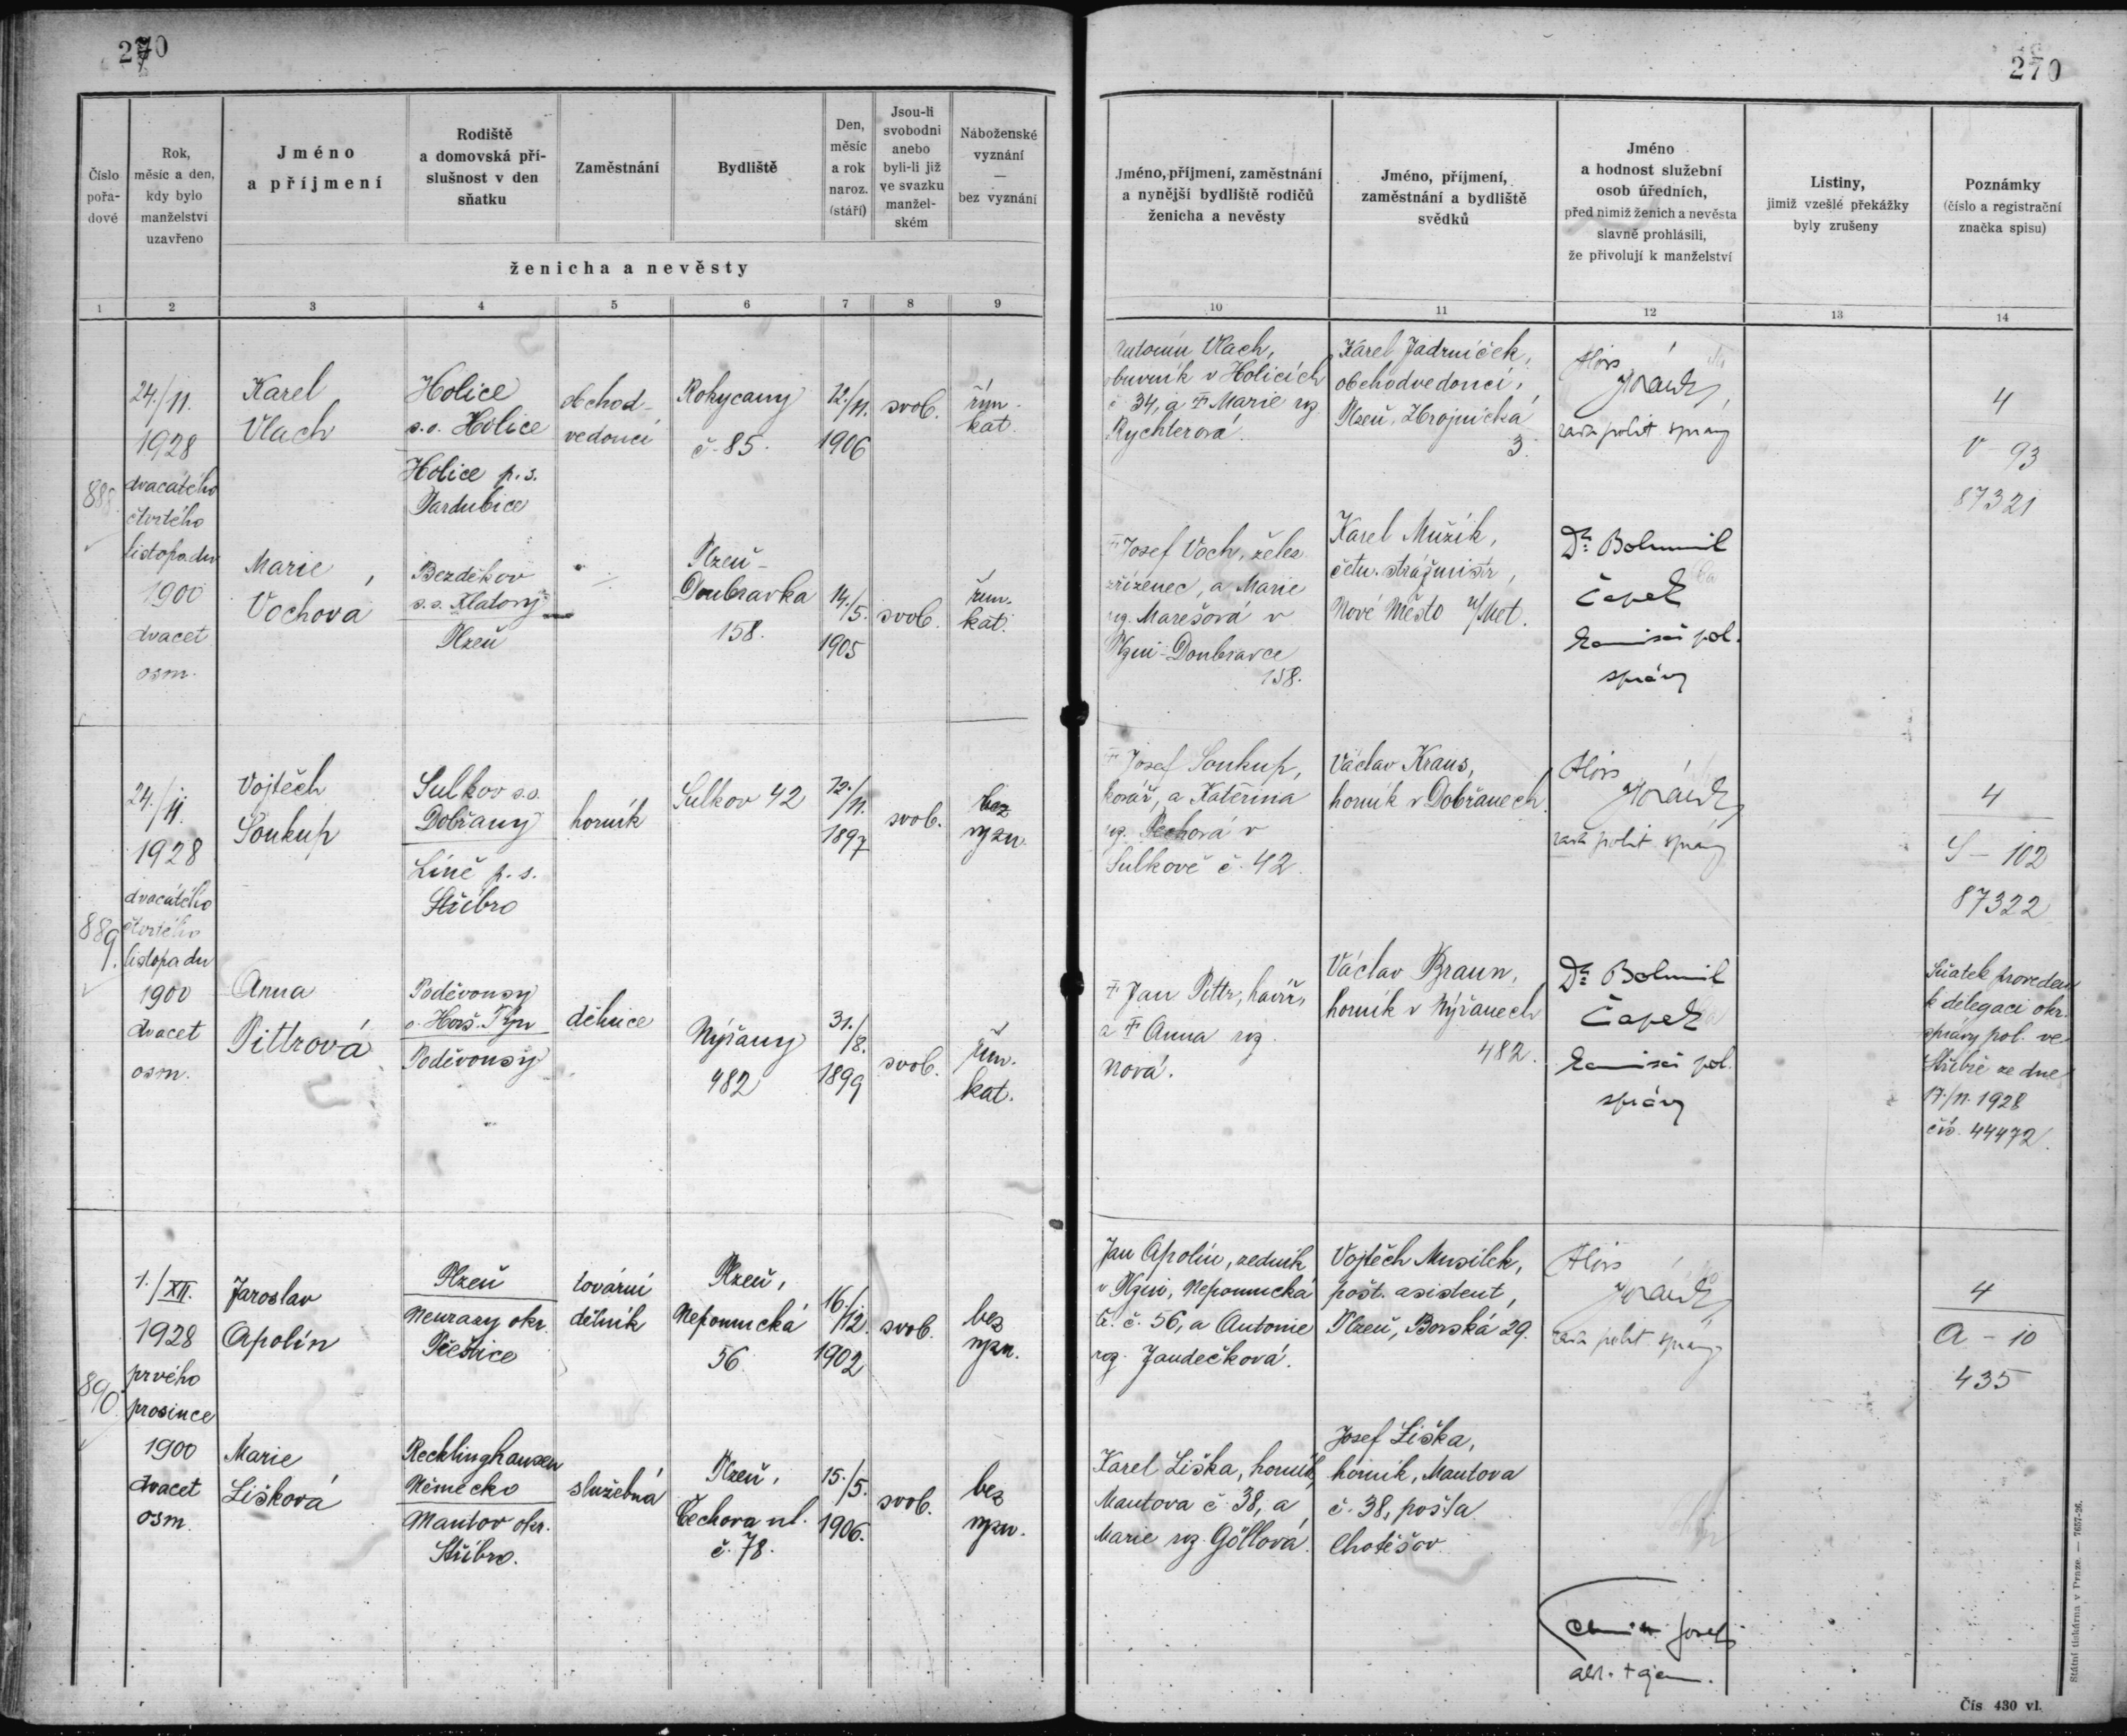 270
270
Číslo
pořa-
dové
Rok,
měsíc a den,
kdy bylo
manželství
uzavřeno
Jméno
a příjmení
Rodiště
a domovská pří-
slušnost v den
sňatku
Zaměstnání
Bydliště
Den,
měsíc
a rok
naroz.
(stáří)
Jsou-li
svobodni
anebo
byli-li již
ve svazku
manžel-
ském
Náboženské
vyznání
—
bez vyznání
ženicha a nevěsty
Jméno, příjmení, zaměstnání
a nynější bydliště rodičů
ženicha a nevěsty
Jméno, příjmení,
zaměstnání a bydliště
svědků
Jméno
a hodnost služební
osob úředních,
před nimiž ženich a nevěsta
slavně prohlásili,
že přivolují k manželství
Listiny,
jimiž vzešlé překážky
byly zrušeny
Poznámky
(číslo a registrační
značka spisu)
1 2 3 4 5 6 7 8 9
10 11 12 13 14
888
24./11.
1928
dvacátého
čtvrtého
listopadu
1900
dvacet
osm.
Karel
Vlach
Holice
s.o. Holice
Holice p. s.
Pardubice
obchod-
vedoucí
Rokycany
č. 85.
12./11.
1906
svob.
řím.
kat.
Antonín Vlach,
obuvník v Holicích
č 34, a † Marie roz.
Rychterová.
Karel Jadrníček,
obchodvedoucí,
Plzeň, Zbrojnická
3.
Alois
rada polit. správy
4
V - 93
87321
Marie
Vochová
Bezděkov
s.o. Klatovy
Plzeň
Plzeň-
Doubravka
158.
14./5.
1905
svob.
řím.
kat.
† Josef Voch, želez.
zřízenec, a Marie
roz. Marešová v
Plzni-Doubravce
158.
Karel Mužík,
četn. strážmistr,
Nové Město n/Met.
Dr. Bohumil
Čapek
komisař pol.
správy
889.
24./11.
1928
dvacátého
čtvrtého
listopadu
1900
dvacet
osm.
Vojtěch
Soukup
Sulkov s.o.
Dobřany
Líně p. s.
Stříbro
horník
Sulkov 42
12./11.
1897
svob.
bez
vyzn.
† Josef Soukup,
kovář, a Kateřina
roz. Pechová v
Sulkově č. 42.
Václav Kraus,
horník v Dobřanech.
Alois
rada polit. správy
4
S - 102
87322
Anna
Pittrová
Poděvousy
o. Horš. Týn
Poděvousy
dělnice
Nýřany
482
31./8.
1899
svob.
řím.
kat.
† Jan Pittr, havíř,
a † Anna roz.
Nová.
Václav Braun,
horník v Nýřanech
482.
Dr. Bohumil
Čapek
komisař pol.
správy
Sňatek proveden
k delegaci okr.
správy pol. ve
Stříbře ze dne
17./11. 1928
čís. 44472.
890.
1./XII.
1928
prvého
prosince
1900
dvacet
osm.
Jaroslav
Apolín
Plzeň
Neurazy okr.
Přeštice
tovární
dělník
Plzeň,
Nepomucká
56
16./12.
1902
svob.
bez
vyzn.
Jan Apolín, zedník
v Plzni, Nepomucká
tř. č. 56, a Antonie
roz. Jandečková.
Vojtěch Musílek,
pošt. asistent,
Plzeň, Borská 29.
Alois
rada polit. správy
4
A - 10
435
Marie
Lišková
Recklinghausen
Německo
Mantov okr.
Stříbro.
služebná
Plzeň,
Čechova ul.
č. 78.
15./5.
1906.
svob.
bez
vyzn.
Karel Liška, horník,
Mantova č. 38, a
Marie roz. Göllová.
Josef Liška,
horník, Mantova
č. 38, pošta
Chotěšov
Josef
Státní tiskárna v Praze. — 7657-26.
Čís 430 vl.